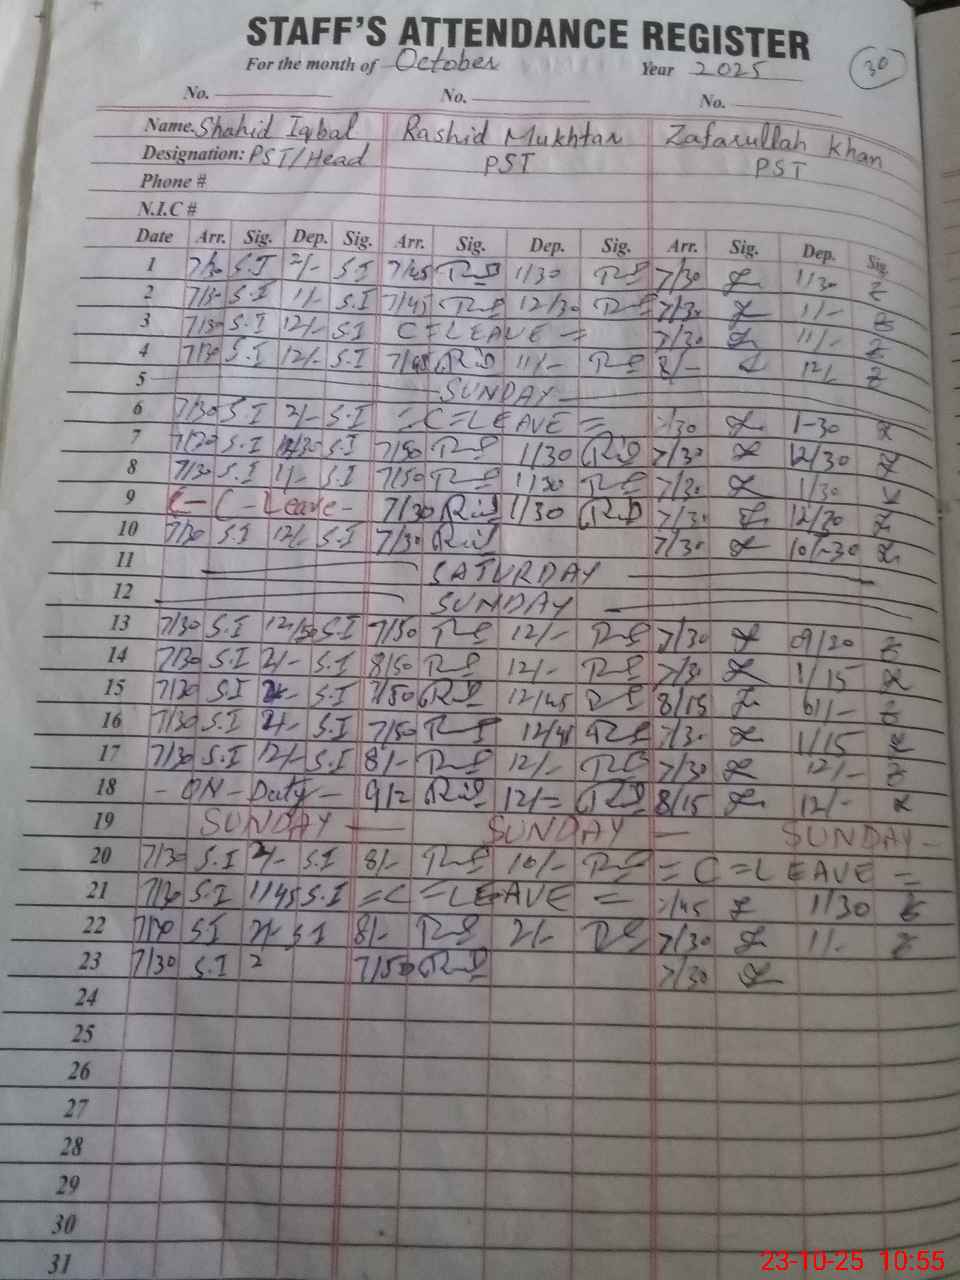 STAFF'S ATTENDANCE REGISTER
For the month of October Year 2025 30
No. No. No.
Name. Shahid Iqbal Rashid Mukhtar Zafarullah Khan
Designation: PST/Head PST PST
Phone #
N.I.C #
Date Arr. Sig. Dep. Sig. Arr. Sig. Dep. Sig. Arr. Sig. Dep. Sig.
1 7/30 S.I 2/- S.I 7/45 1/30 7/30 1/30
2 7/30 S.I 1/- S.I 7/45 12/30 7/30 11/-
3 7/30 S.I 12/- S.I C=LEAVE = 7/30 11/-
4 7/30 S.I 12/- S.I 7/45 11/- 8/- 12/-
5 SUNDAY
6 7/30 S.I 2/- S.I =C=LEAVE = 7/30 1-30
7 7/30 S.I S.I 7/50 1/30 7/30 12/30
8 7/30 S.I 1/- S.I 7/50 1/30 7/30 1/30
9 C-Leave- 7/30 1/30 7/30 12/30
10 7/30 S.I 12/- S.I 7/30 7/30 10/-30
11 SATURDAY
12 SUNDAY
13 7/30 S.I 12/30 S.I 7/50 12/- 7/30 09/20
14 7/30 S.I 2/- S.I 8/50 12/- 7/30 1/15
15 7/30 S.I S.I 7/50 12/45 8/15
16 7/30 S.I 2/- S.I 7/50 12/45 7/30 1/15
17 7/30 S.I 12/- S.I 8/- 12/- 7/30 12/-
18 - ON - Duty - 9/= 12/= 8/15 12/-
19 SUNDAY — SUNDAY — SUNDAY -
20 7/30 S.I 2/- S.I 8/- 10/- = C = LEAVE =
21 7/30 S.I 1/45 S.I =C=LEAVE = 7/45 1/30
22 7/30 S.I 2/- S.I 8/- 2/- 7/30 1/-
23 7/30 S.I 2 7/50 7/30
24
25
26
27
28
29
30
31
23-10-25 10:55